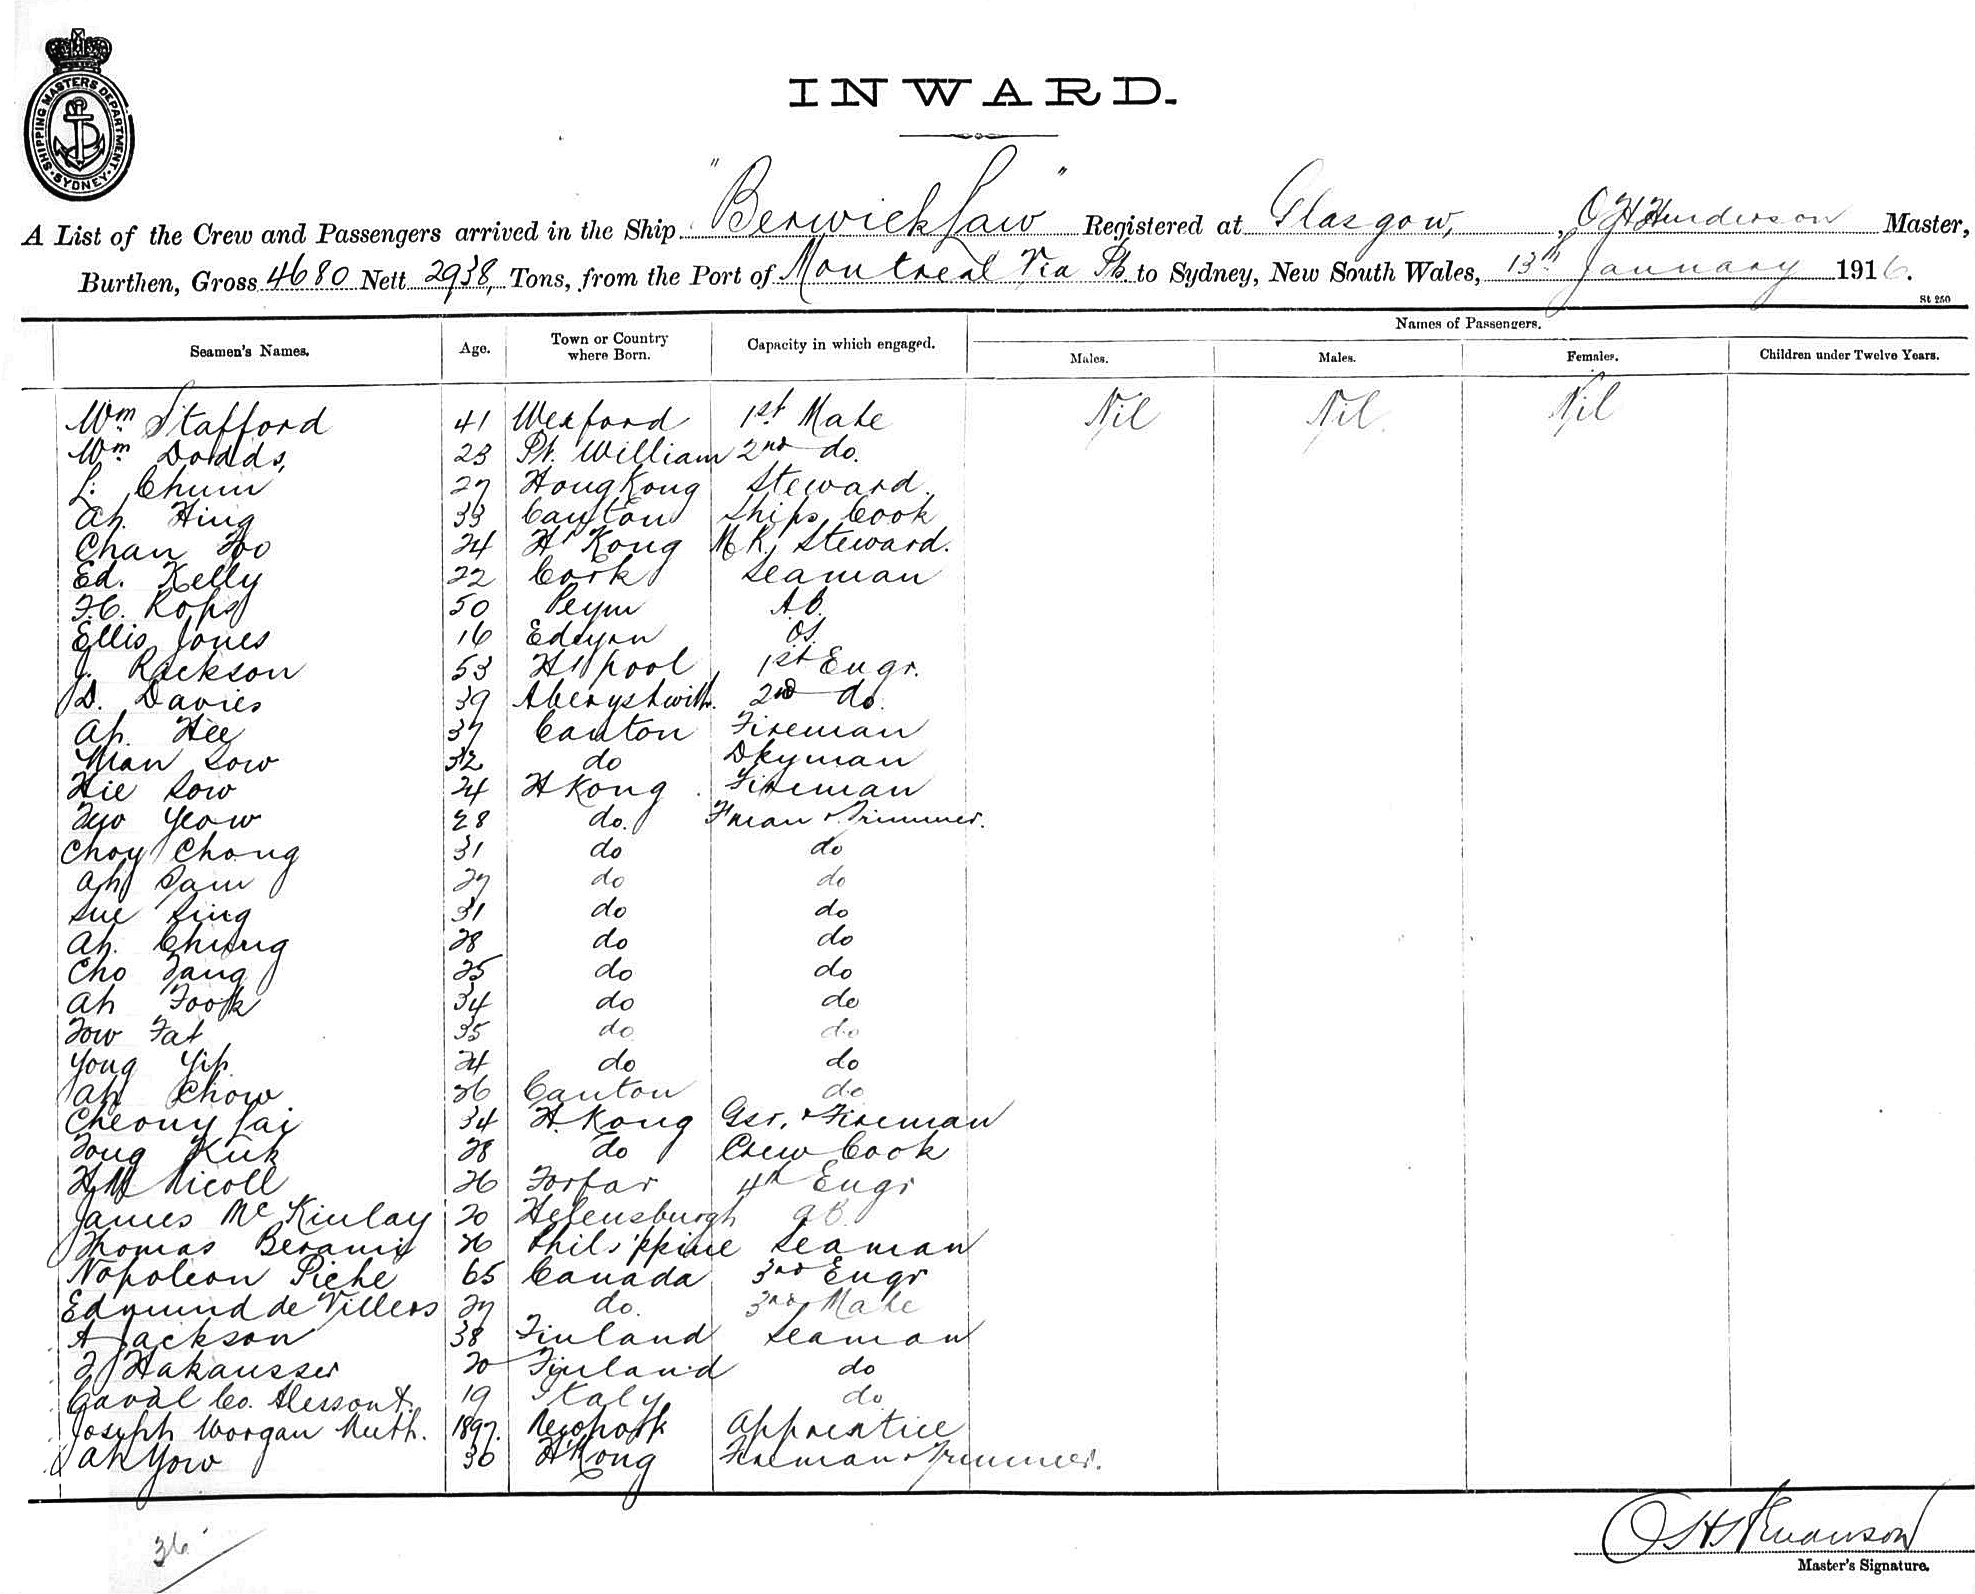 SHIPPING MASTERS DEPARTMENT
SYDNEY
INWARD.
A List of the Crew and Passengers arrived in the Ship "Berwick Law" Registered at Glasgow, Henderson Master,
Burthen, Gross 4680 Nett 2938, Tons, from the Port of Montreal Via Pt. to Sydney, New South Wales, 13th January 1916.
St 250
Names of Passengers.
Seamen's Names. Age. Town or Country where Born. Capacity in which engaged. Males. Males. Females. Children under Twelve Years.
Wm Stafford 41 Wexford 1st Mate Nil Nil Nil
Wm Dodds, 23 Pt. William 2nd do.
L. Chum 27 Hong Kong Steward.
Ah. Hing 33 Canton Ships Cook
Chan Foo 24 H' Kong M R. Steward.
Ed. Kelly 22 Cork Seaman
Rops 50 A.B.
Ellis Jones 16 O.S.
J. Rickson 53 H'pool 1st Engr.
D. Davies 39 Aberystwith. 2nd do.
Ah. Hee 37 Canton Fireman
Man Sow 32 do Dkyman
Hie Sow 24 H Kong Fireman
Yeow 28 do. F'man & Trimmer.
Choy Chong 31 do do
Ah Sam 27 do do
Sue Sing 31 do do
Ah. Chung 28 do do
Cho Fang 25 do do
Ah Fook 34 do do
Fow Fat 35 do do
Yong Yip 24 do do
Ah Chow 26 Canton do
Cheong Sai 34 H. Kong Gsr. & Fireman
Fong Kuk 28 do Crew Cook
H M Nicoll 26 Forfar 4th Engr
James McKinlay 20 Helensburgh A.B.
Thomas 26 Philsippine Seaman
Napoleon Piche 65 Canada 3rd Engr
Edmund de Villers 27 do. 3rd Mate
A Jackson 38 Finland Seaman
Hakansser 20 Finland do
19 Italy do
Joseph Worgan 1897. Newport Apprentice
Ah Yow 30 H'Kong Fireman & Trimmer.
36
Master's Signature.